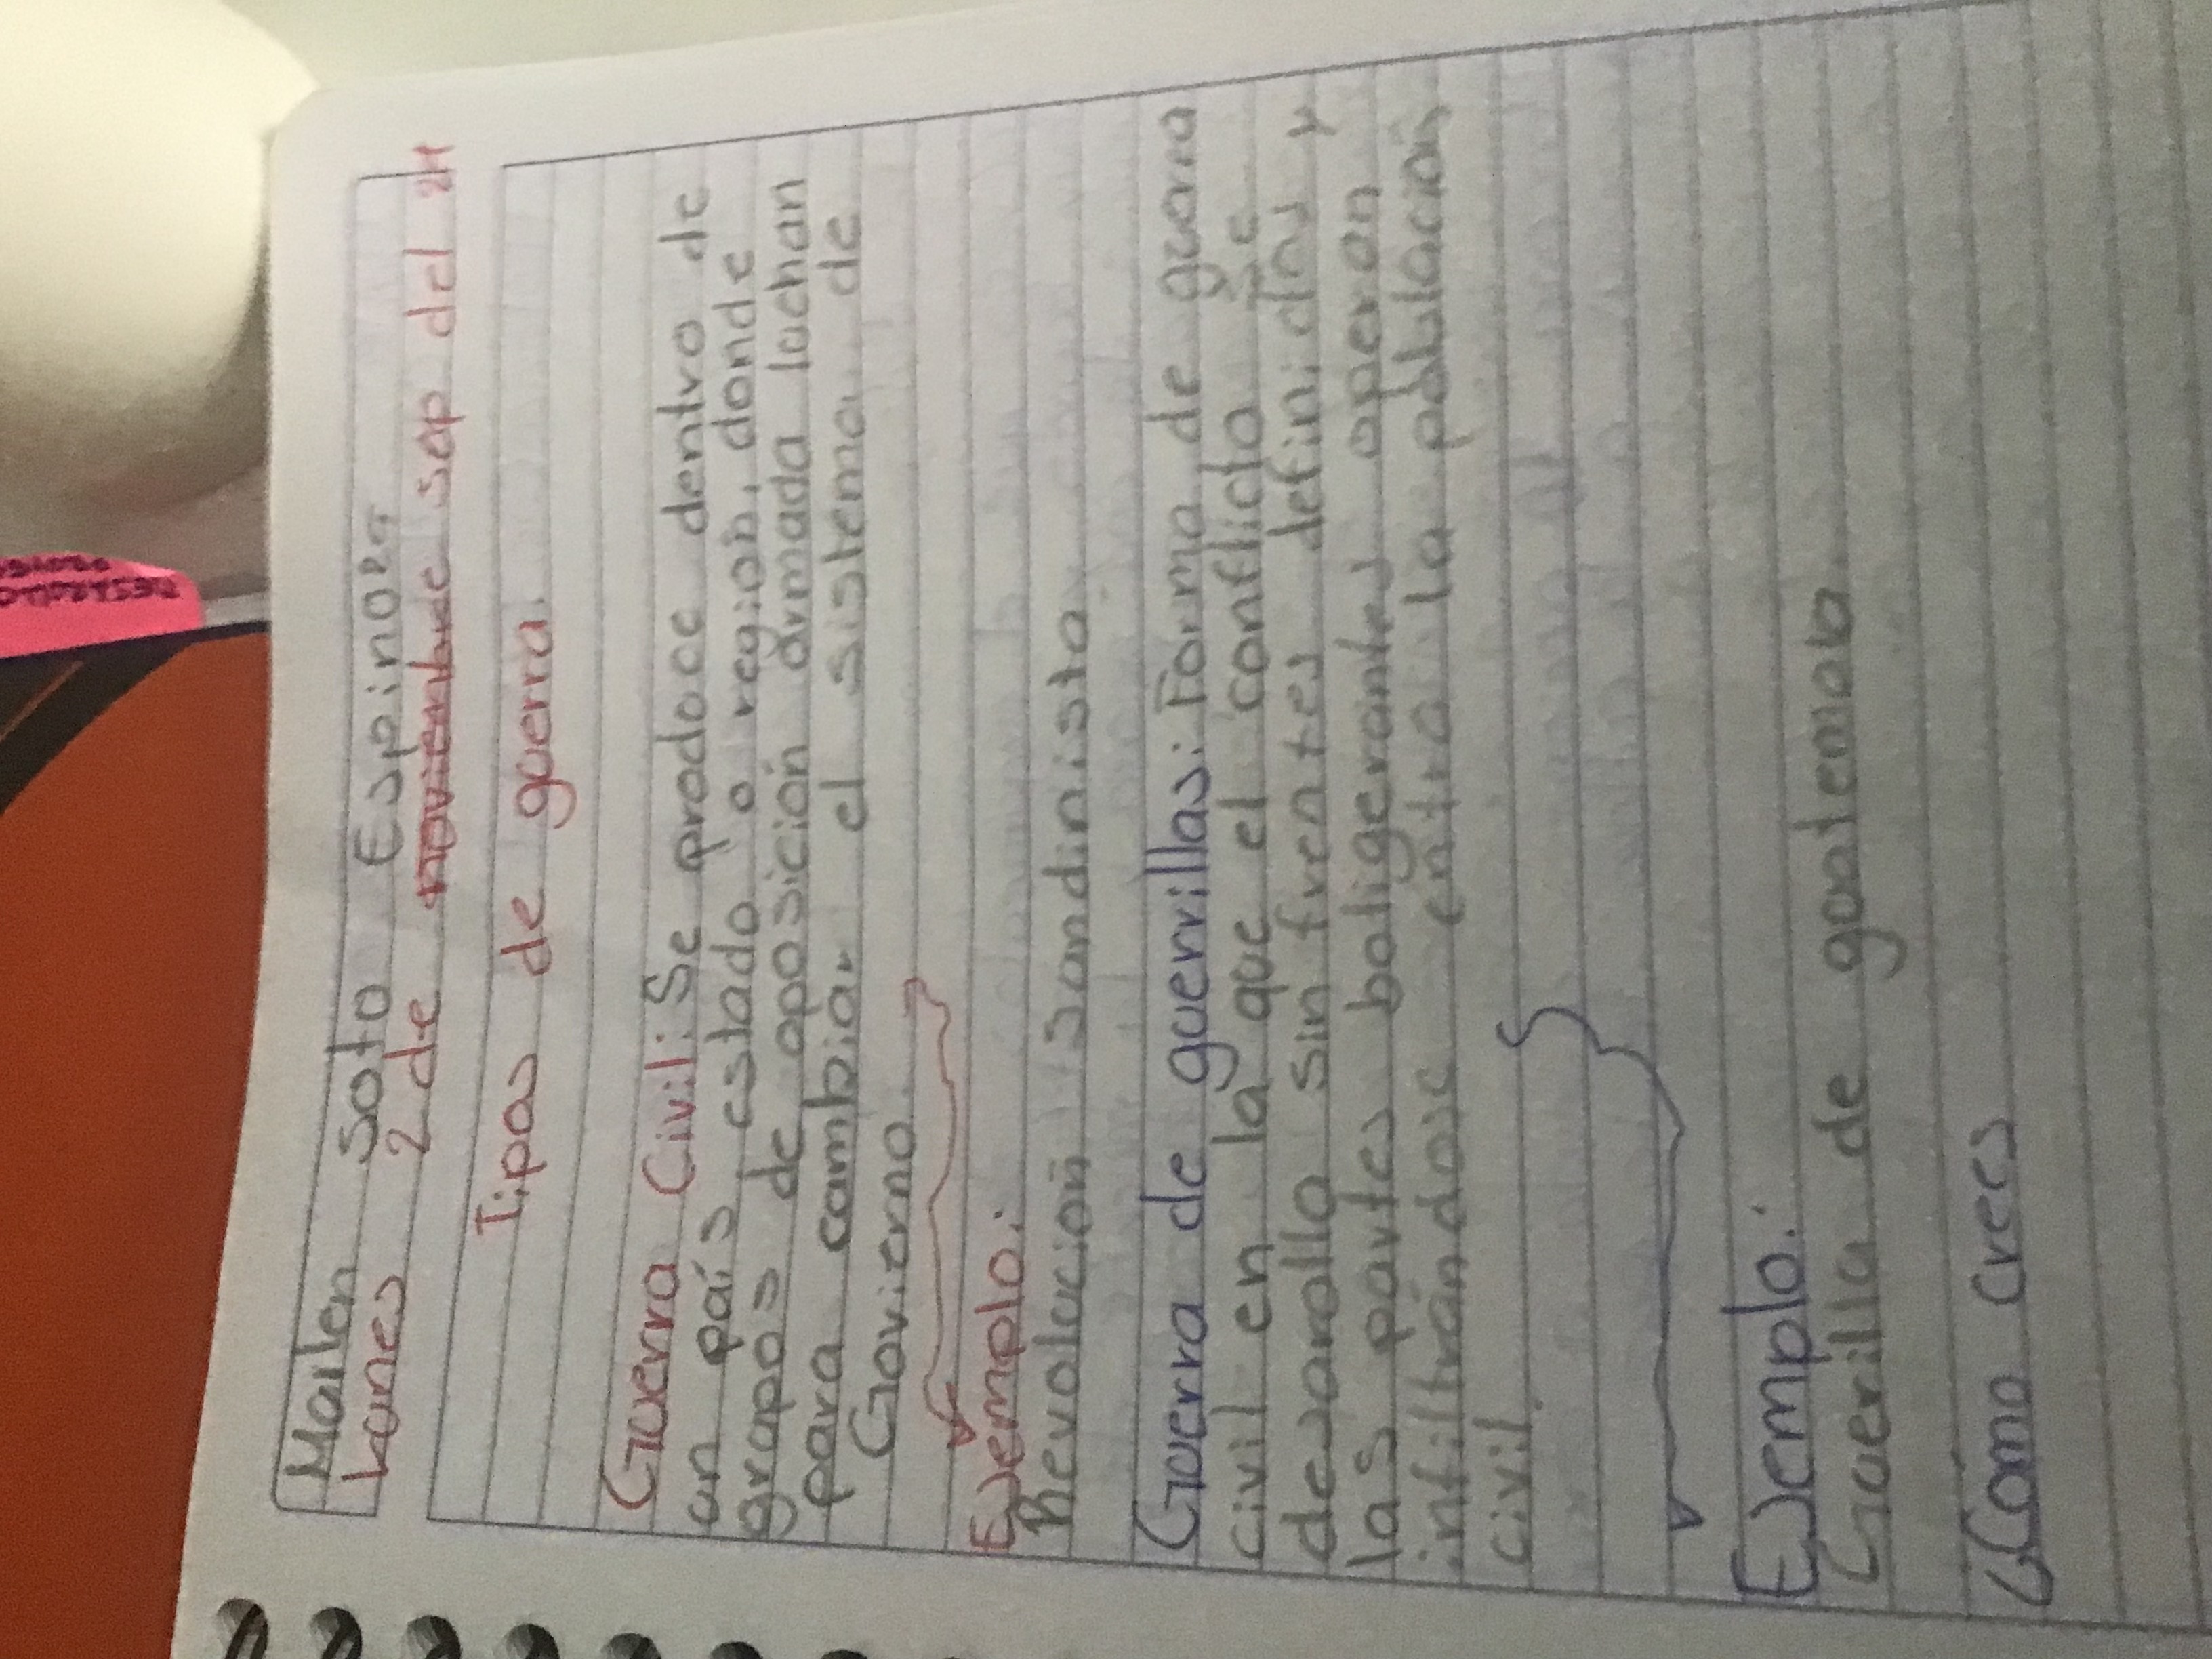 Mailen Soto Espinoza
Lunes 2 de noviembre sep del 24
Tipos de guerra.
Guerra Civil: Se produce dentro de
un país, estado o región, donde
grupos de oposición armada luchan
para cambiar el sistema de
Govierno.
Ejemplo:
Revolución Sandinista
Guerra de guerrillas: Forma de guerra
civil en la que el conflicto se
desarollo sin frentes definidos y
las partes boligerantes operan
infiltrándose entra la población
civil.
Ejemplo:
Guerilla de guatemala.
¿Cómo crees
DESARROLLO